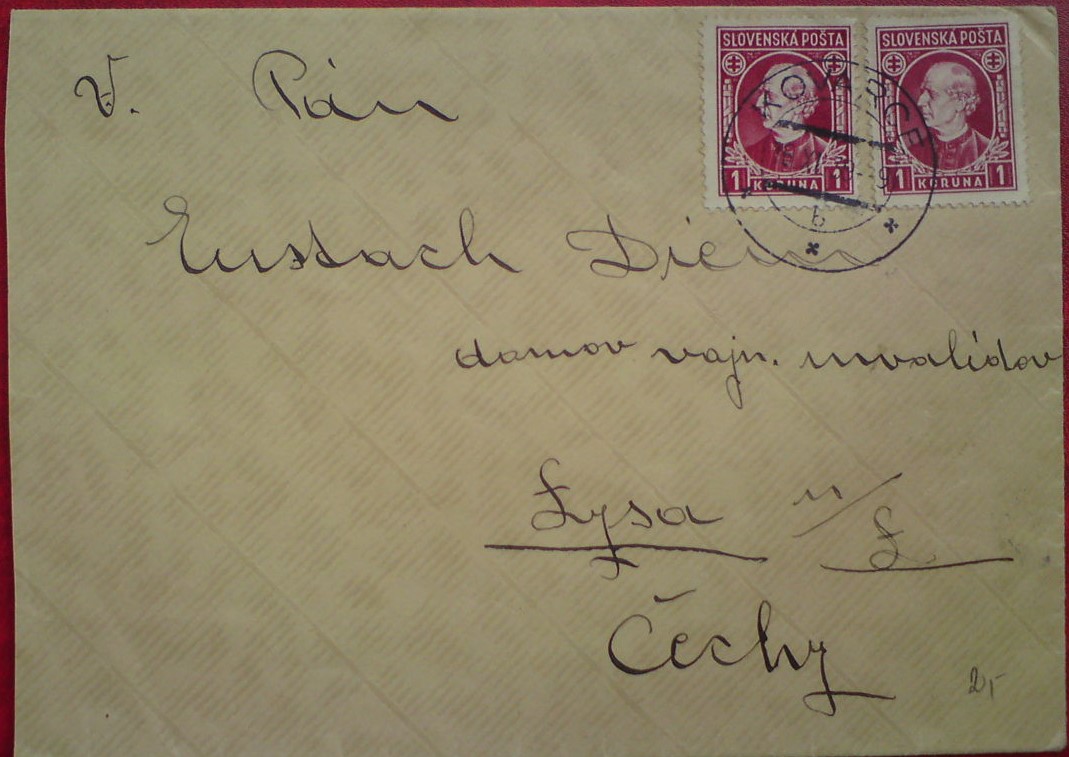 SLOVENSKÁ POŠTA SLOVENSKÁ POŠTA
1 KORUNA 1 1 KORUNA 1
KOVARCE
b
V. Pán
Eustach Diem
domov vojn. invalidov
Lysa n/L
Čechy
2,-